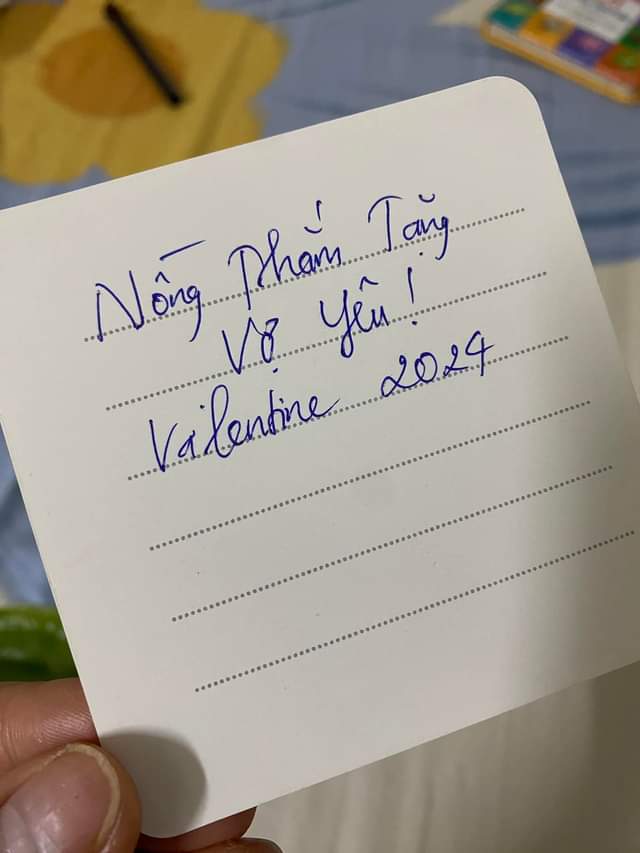 Nồng Thắm Tặng
Vợ Yêu!
Valentine 2024